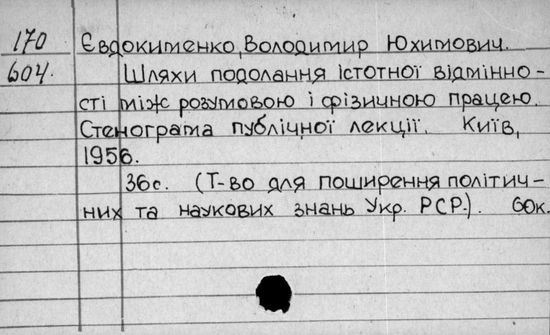 170 Євдокименко, Володимир Юхимович.
604. Шляхи подолання істотної відмінно-
сті між розумовою і фізичною працею.
Стенограма публічної лекції. Київ,
1956.
36с. (Т-во для поширення політич-
них та наукових знань Укр. РСР.). 60к.